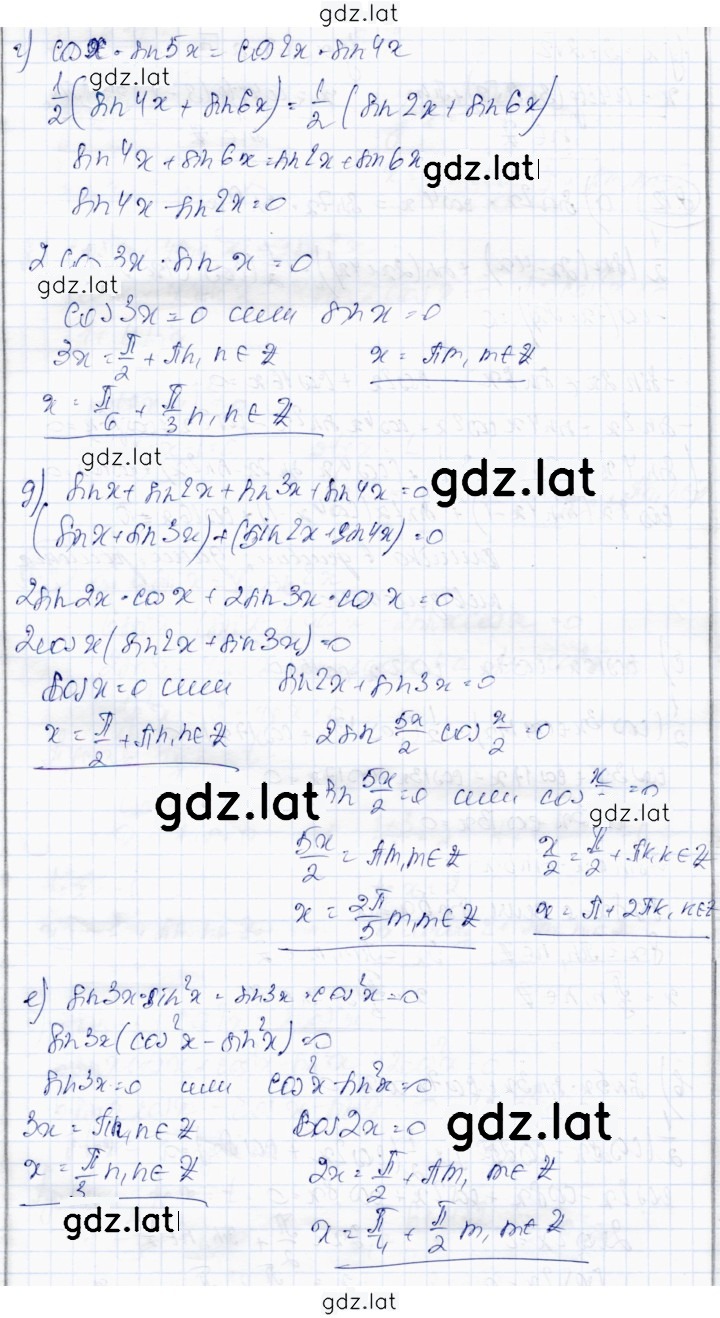 gdz.lat
г) cosx · sin5x = cos2x · sin4x
gdz.lat
1/2 (sin4x + sin6x) = 1/2 (sin2x + sin6x)
sin4x + sin6x = sin2x + sin6x
gdz.lat
sin4x - sin2x = 0
2 cos 3x · sin x = 0
gdz.lat
cos3x = 0 или sinx = 0
3x = π/2 + πn, n ∈ Z x = πm, m ∈ Z
x = π/6 + π/3 n, n ∈ Z
gdz.lat
gdz.lat
д) sinx + sin2x + sin3x + sin4x = 0
(sinx + sin3x) + (sin2x + sin4x) = 0
2sin2x · cosx + 2sin3x · cosx = 0
2cosx (sin2x + sin3x) = 0
cosx = 0 или sin2x + sin3x = 0
x = π/2 + πn, n ∈ Z 2sin 5x/2 cos x/2 = 0
gdz.lat
sin 5x/2 = 0 или cos x = 0
gdz.lat
5x/2 = πm, m ∈ Z x/2 = π/2 + πk, k ∈ Z
x = 2π/5 m, m ∈ Z x = π + 2πk, k ∈ Z
е) sin3x · sin²x - sin3x · cos²x = 0
sin3x (cos²x - sin²x) = 0
sin3x = 0 или cos²x - sin²x = 0
3x = πn, n ∈ Z cos2x = 0
gdz.lat
x = π/3 n, n ∈ Z 2x = π/2 + πm, m ∈ Z
gdz.lat
x = π/4 + π/2 m, m ∈ Z
gdz.lat